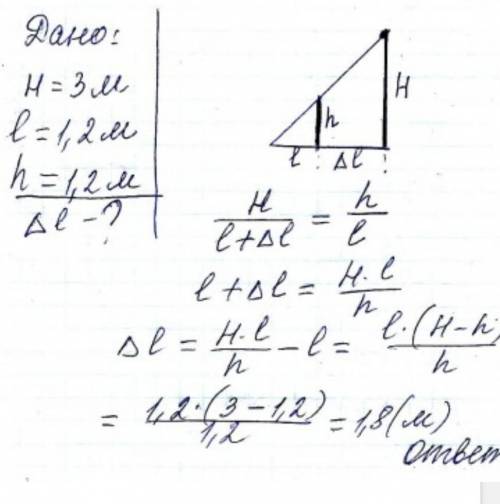 Дано:
H = 3 м
l = 1,2 м
h = 1,2 м
Δl - ?
H
h
l Δl
H/(l+Δl) = h/l
l + Δl = H·l/h
Δl = H·l/h - l = l·(H-h)/h
= 1,2·(3-1,2)/1,2 = 1,8 (м)
Ответ